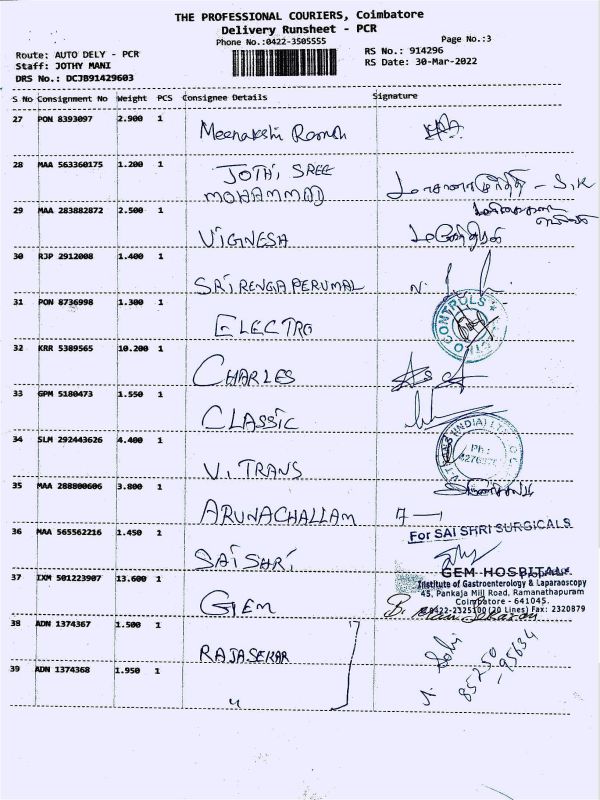 THE PROFESSIONAL COURIERS, Coimbatore
Delivery Runsheet - PCR
Phone No.:0422-3505555
Page No.:3
Route: AUTO DELY - PCR
Staff: JOTHY MANI
DRS No.: DCJB91429603
RS No.: 914296
RS Date: 30-Mar-2022
S No Consignment No Weight PCS Consignee Details Signature
27 PON 8393097 2.900 1 Meenakshi Ramesh
28 MAA 563360175 1.200 1 JOTHI SREE
MOHAMMAD
29 MAA 283882872 2.500 1 VIGNESA
30 RJP 2912008 1.400 1 SRI RENGA PERUMAL
31 PON 8736998 1.300 1 ELECTRO
32 KRR 5389565 10.200 1 CHARLES
33 GPM 5180473 1.550 1 CLASSIC
34 SLM 292443626 4.400 1 V. TRANS
35 MAA 288800606 3.800 1 ARUNACHALLAM
36 MAA 565562216 1.450 1 SAI SHRI
For SAI SHRI SURGICALS
37 IXM 501223907 13.600 1 GEM
GEM HOSPITAL
Institute of Gastroenterology & Laparaoscopy
45, Pankaja Mill Road, Ramanathapuram
Coimbatore - 641045.
0422-2325100 (20 Lines) Fax: 2320879
38 ADN 1374367 1.500 1 RAJASEKAR
39 ADN 1374368 1.950 1 "
85250
-95634